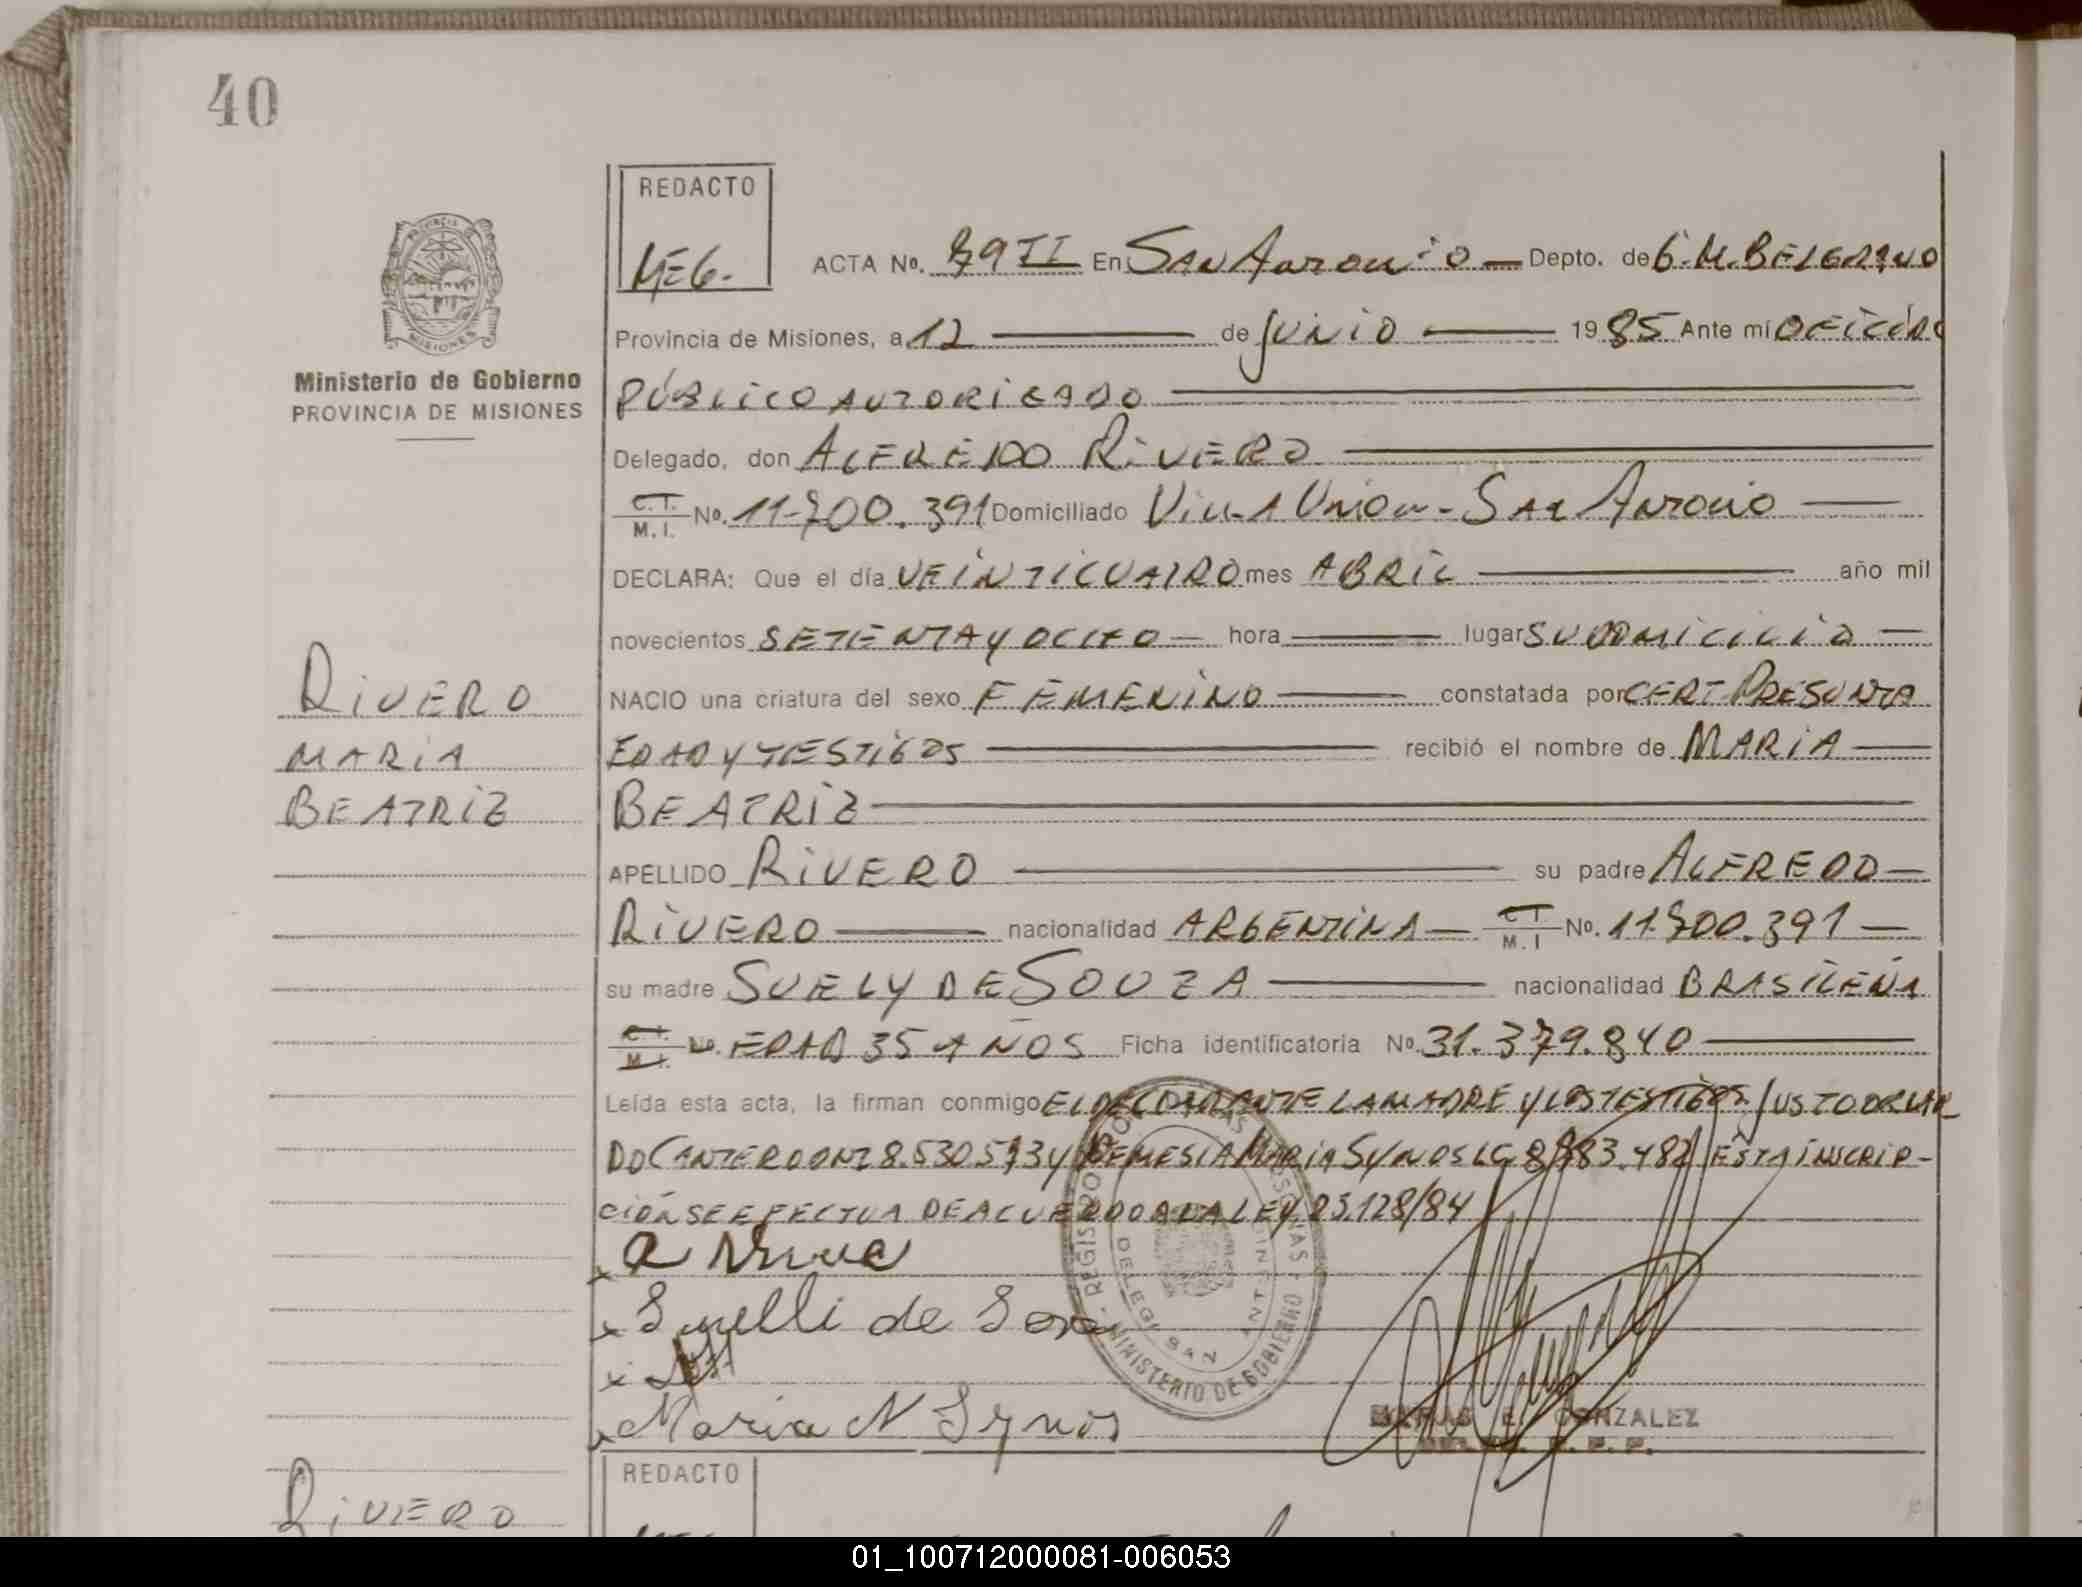 40
REDACTO
MEG.
ACTA No. 79 II En San Antonio Depto. de G. M. BELGRANO
Provincia de Misiones, a 12 de Junio 1985 Ante mí OFICIAL
PÚBLICO AUTORIZADO
Ministerio de Gobierno
PROVINCIA DE MISIONES
Delegado, don ALFREDO RIVERO
C.I. M.I. No. 11.700.391 Domiciliado Villa Unión - San Antonio
DECLARA: Que el día VEINTICUATRO mes ABRIL año mil
novecientos SETENTA Y OCHO hora lugar SU DOMICILIO
RIVERO
MARIA
BEATRIZ
NACIO una criatura del sexo FEMENINO constatada por CERT PRESUNTA
EDAD Y TESTIGOS recibió el nombre de MARIA
BEATRIZ
APELLIDO RIVERO su padre ALFREDO
RIVERO nacionalidad ARGENTINA C.I. M.I No. 11.700.391
su madre SUELY DE SOUZA nacionalidad BRASILEÑA
C.I. M.I. No. EDAD 35 AÑOS Ficha identificatoria No. 31.379.840
Leída esta acta, la firman conmigo EL DECLARANTE LA MADRE Y LOS TESTIGOS JUSTO ORLAN
DO CANTERO DNI 8.530.573 Y NEMESIA MARIA SYNOS LC 483.482 ESTA INSCRIP-
CIÓN SE EFECTUA DE ACUERDO A LA LEY 23.128/84
x
x Suelli de Sosa
x
x Maria N Synos
MINISTERIO DE GOBIERNO
SAN ANTONIO
E. GONZALEZ
REDACTO
RIVERO
01_100712000081-006053